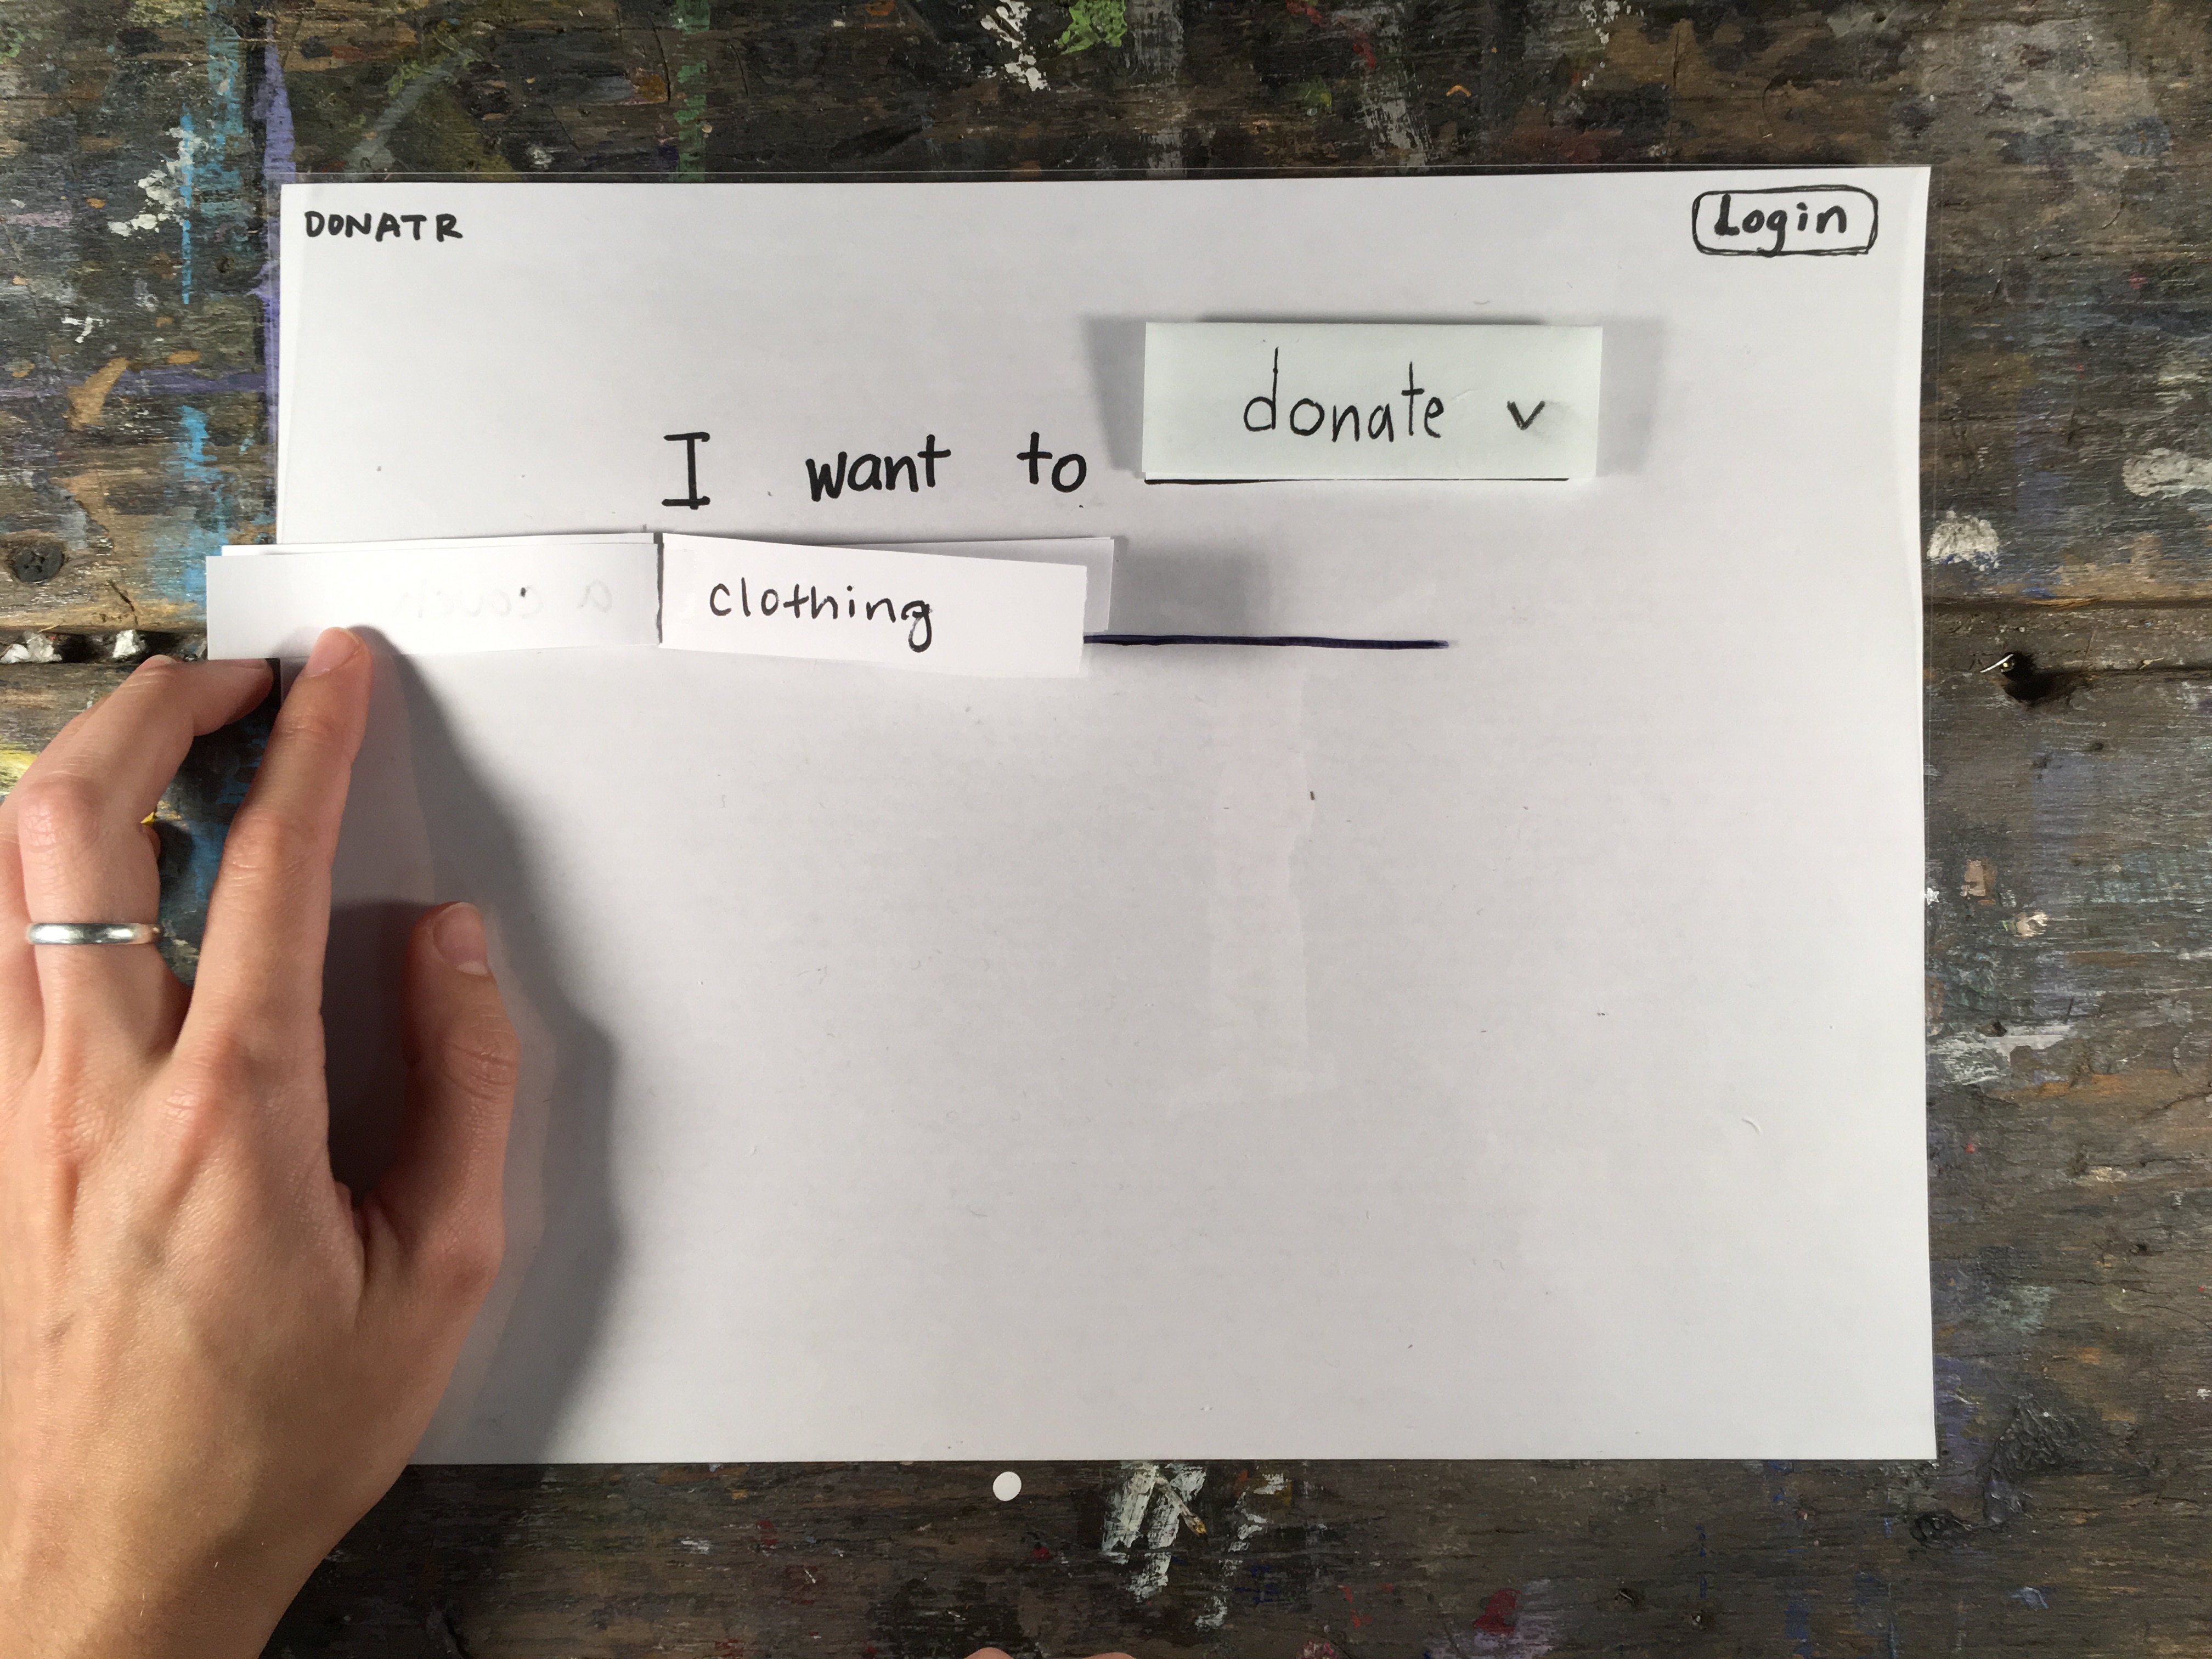 DONATR
Login
I want to donate v
clothing
a couch